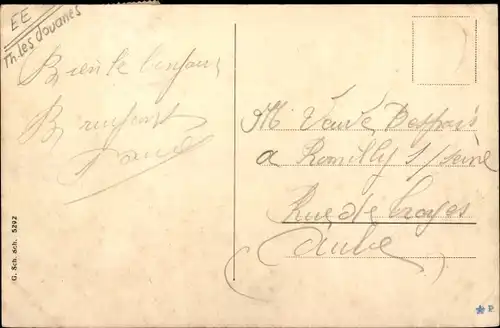 EE
Th. les douanes
Bien le bonjour
M Veuve
a Romilly s/seine
Rue de Troyes
(Aube)
G. Sch. Sch. 5292
P